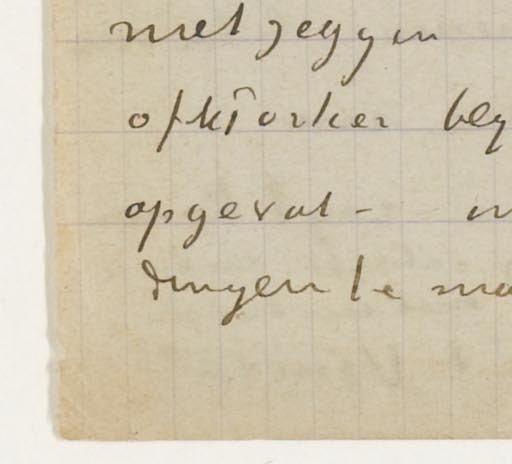 niet zeggen
of kTorker beg
opgevat -
dingen te ma